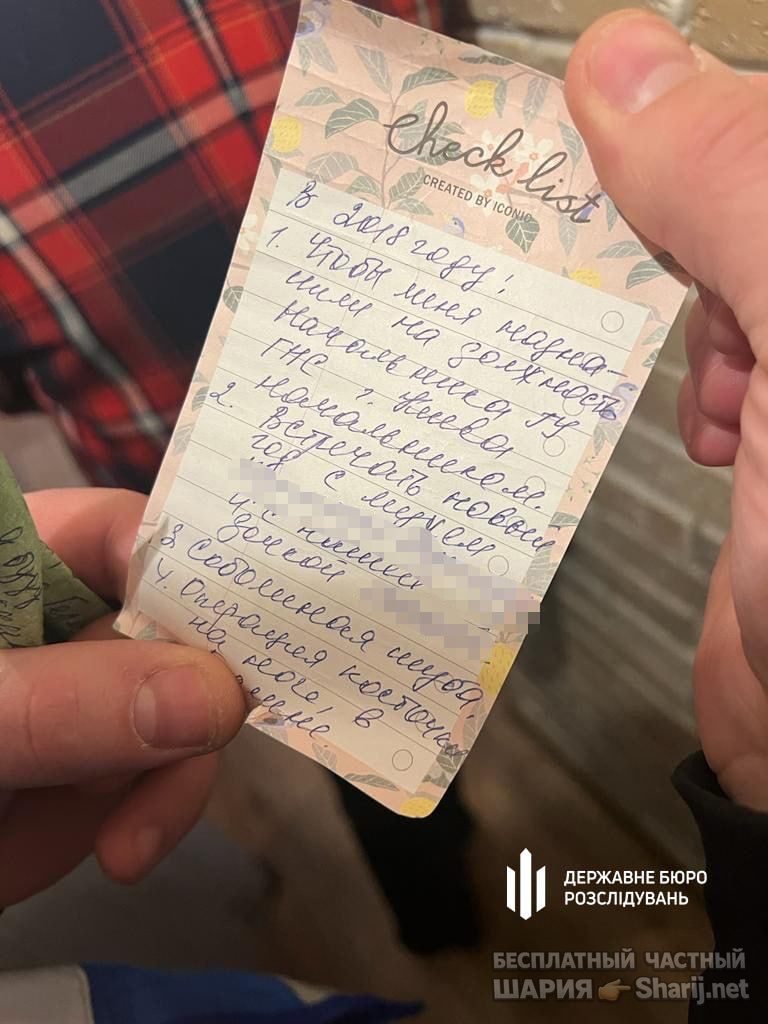 check list
CREATED BY ICONIC
В 2018 году!
1. Чтобы меня назна-
чили на должность
начальника ГУ
ГНС г. Киева
начальником.
2. Встречать новый
год с мужем
и
дочкой
3. Соболиная шуба,
4. Операция косточки
на ноге, в
ДЕРЖАВНЕ БЮРО
РОЗСЛІДУВАНЬ
БЕСПЛАТНЫЙ ЧАСТНЫЙ
ШАРИЯ Sharij.net